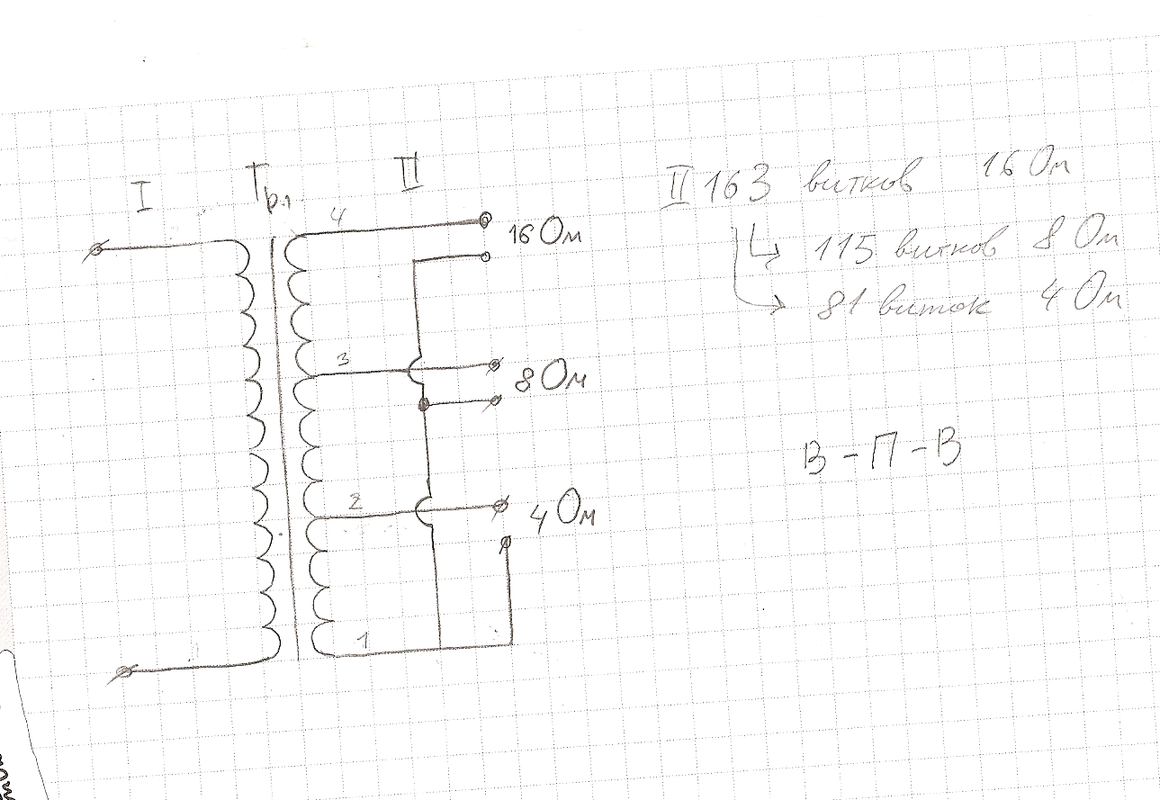 I Тр.1 II
4
16 Ом
3
8 Ом
2
4 Ом
1
II 163 витков 16 Ом
115 витков 8 Ом
81 виток 4 Ом
В - П - В